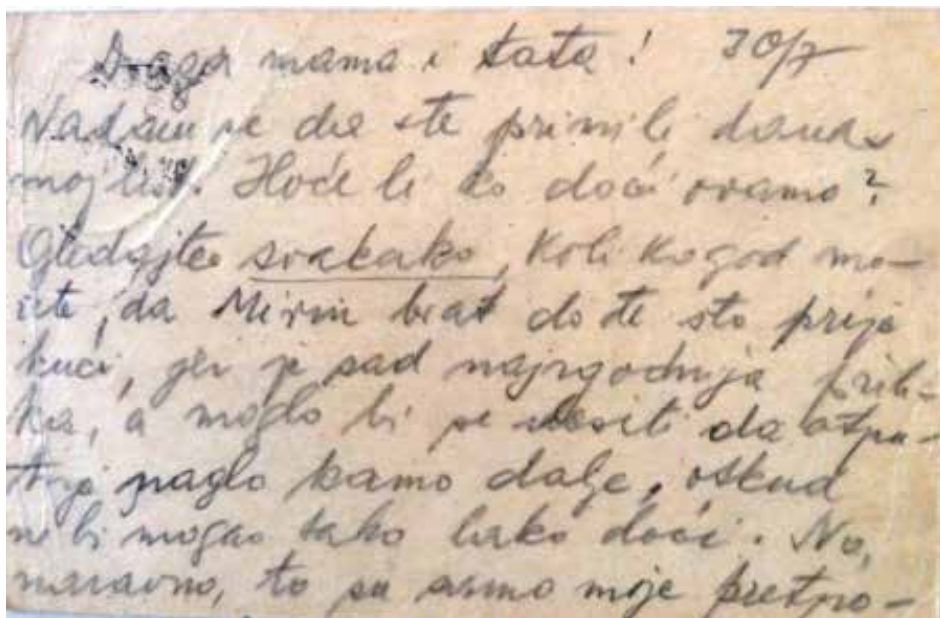 Draga mama i tata! 30/7
Nadam se da ste primili danas
moj list. Hoće li ko doći ovamo?
Gledajte svakako, koliko god mo-
žete, da Mirin brat dođe što prije
kući, jer je sad najzgodnija prili-
ka, a moglo bi se desiti da otpu-
tuje naglo kamo dalje, otkud
ne bi mogao tako lako doći. No,
naravno, to su samo moje pretpo-